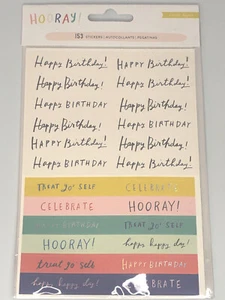 HOORAY!
153 STICKERS | AUTOCOLLANTS | PEGATINAS
Happy Birthday! HAPPY BIRTHDAY!
Happy Birthday! Happy Birthday!
Happy BIRTHDAY Happy BIRTHDAY
Happy Birthday! Happy Birthday!
HAPPY BIRTHDAY! Happy Birthday!
Happy BIRTHDAY HAPPY BIRTHDAY!
TREAT YO' SELF CELEBRATE
CELEBRATE HOORAY!
HAPPY BIRTHDAY TREAT YO' SELF
HOORAY! happy happy day!
treat yo' self HAPPY BIRTHDAY